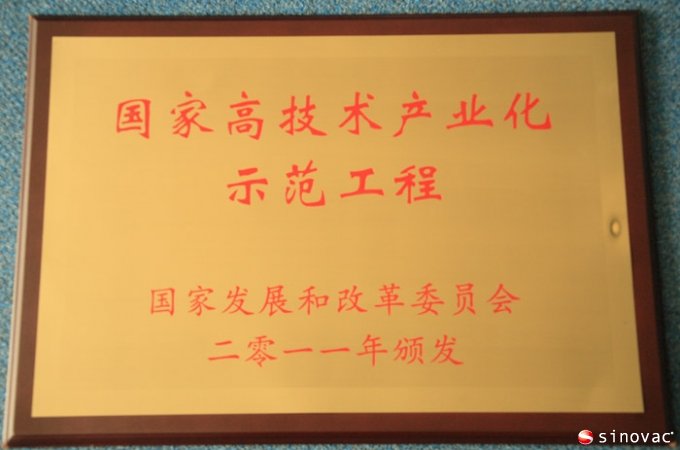 国家高技术产业化
示范工程
国家发展和改革委员会
二零一一年颁发
sinovac